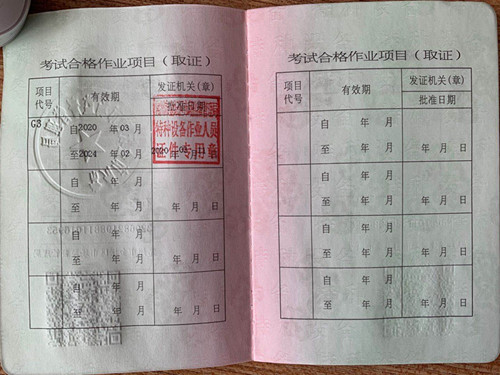 考试合格作业项目（取证）
项目代号
有效期
发证机关(章)
批准日期
G3
自2020年03月
至2024年02月
特种设备作业人员
证件专用章
2020年03月
自 年 月
至 年 月
年 月 日
自 年 月
至 年 月
年 月 日
自 年 月
至 年 月
年 月 日
考试合格作业项目（取证）
项目代号
有效期
发证机关(章)
批准日期
自 年 月
至 年 月
年 月 日
自 年 月
至 年 月
年 月 日
自 年 月
至 年 月
年 月 日
自 年 月
至 年 月
年 月 日